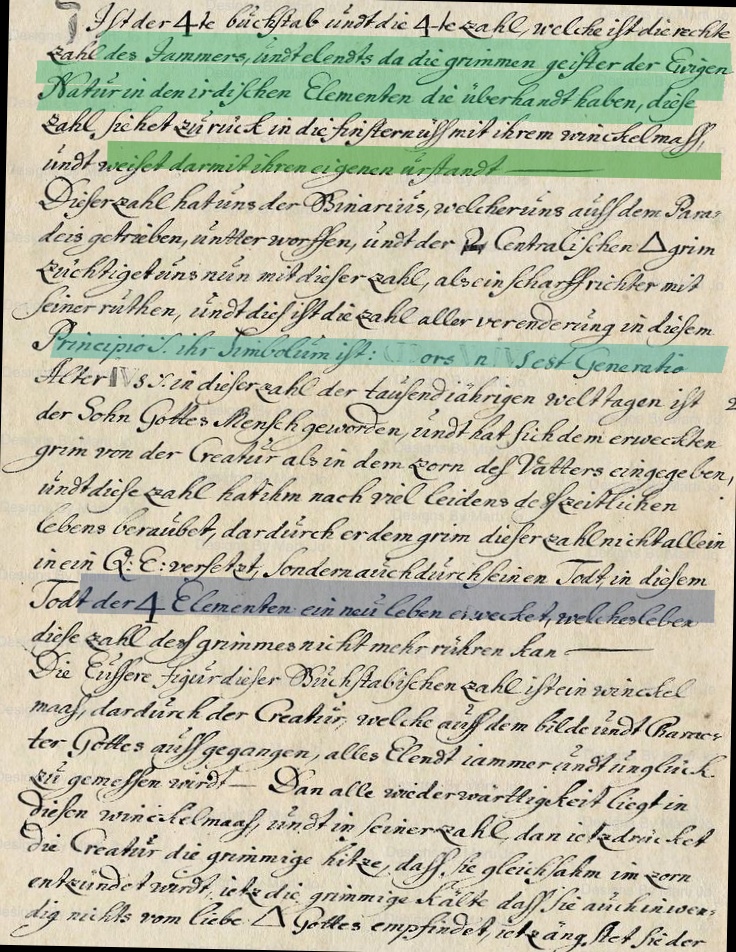 Ist der 4te büchstab ündt die 4te zahl, welche ist die rechte
zahl des Jammers, ündt elendts da die grimmen geister der Ewigen
Natür in den irdischen Elementen die überhandt haben, diese
zahl siehet zürück in die finsternüss mit ihrem winckelmass,
ündt weiset darmit ihren eigenen ürstandt
Dieser zahl hat üns der Binariüs, welcher üns auss dem Para:
deis getrieben, üntter worffen, ündt der Centralischen △ grim
züchtiget üns nün mit dieser zahl, als ein scharffrichter mit
seiner rüthen, ündt dies ist die zahl aller verenderüng in diesem
Principio S. ihr Simbolum ist: ors n s est Generatio
Alter S. in dieser zahl der taüsendjährigen welt tagen ist
der Sohn Gottes Mensch geworden, ündt hat sich dem erweckten
grim von der Creatür als in dem zorn dess Vatters eingegeben,
ündt diese zahl hat ihm nach viel leidens dess zeitlichen
lebens beraübet, dardürch er dem grim dieser zahl nicht allein
in ein Q: E: versetzt, sondern aüch dürch seinen Todt, in diesem
Todt der 4 Elementen ein neü leben erwecket, welches leben
diese zahl dess grimmes nicht mehr rühren kan
Die Eüssere figür dieser Büchstabischen zahl ist ein winckel
maas, dardürch der Creatür, welche aüss dem bilde ündt Charac:
ter Gottes aüss gegangen, alles Elendt iammer ündt unglück
zü gemessen wirdt — Dan alle wiederwärttigkeit liegt in
diesen winckelmaas, ündt in seiner zahl, dan ietz drücket
die Creatür die grimmige hitze, dass sie gleichsahm im zorn
entzündet wirdt, ietz die grimmige Kälte dass sie aüch inwen:
dig nichts vom liebe △ Gottes empfindet, ietz ängstet sie der